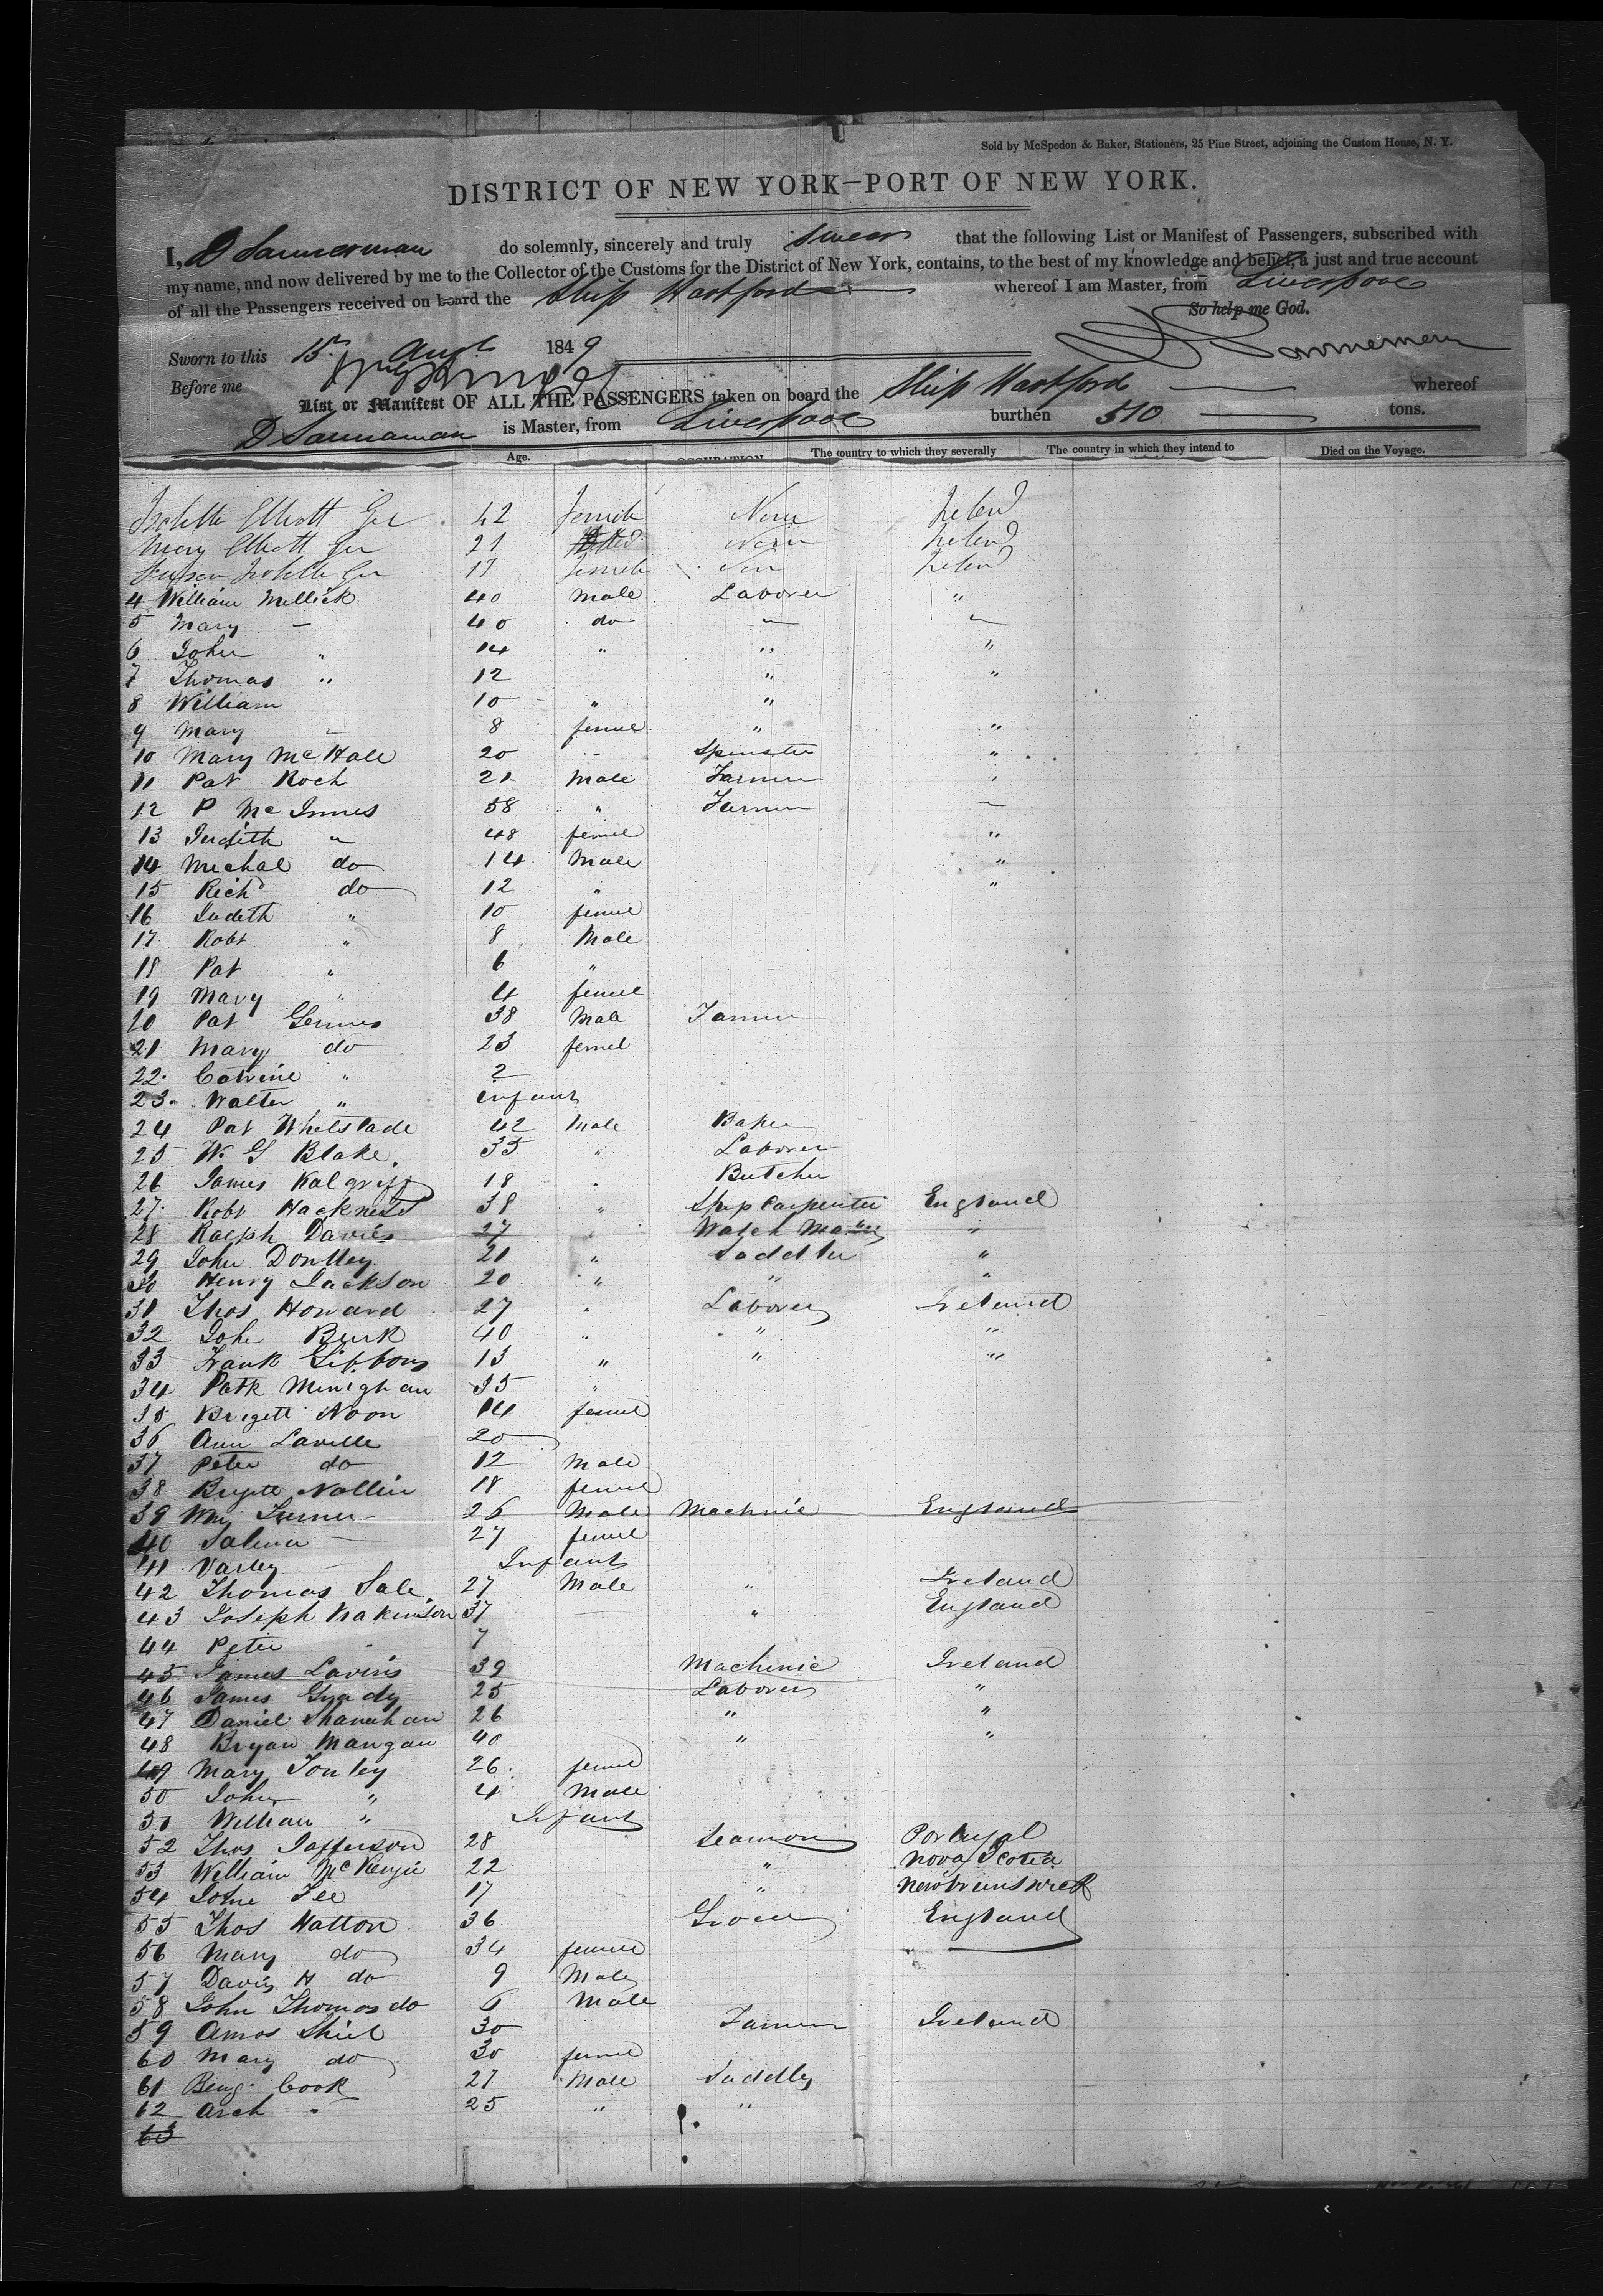 Sold by McSpedon & Baker, Stationers, 25 Pine Street, adjoining the Custom House, N. Y.
DISTRICT OF NEW YORK—PORT OF NEW YORK.
I, D Sannerman do solemnly, sincerely and truly swear that the following List or Manifest of Passengers, subscribed with
my name, and now delivered by me to the Collector of the Customs for the District of New York, contains, to the best of my knowledge and belief, a just and true account
of all the Passengers received on board the Ship Hartford whereof I am Master, from Liverpool
So help me God.
Sworn to this 15th Augt 1849
Before me
List or Manifest OF ALL THE PASSENGERS taken on board the Ship Hartford whereof
D Sannaman is Master, from Liverpool burthen 510 tons.
Age. OCCUPATION The country to which they severally The country in which they intend to Died on the Voyage.
Elliott 42 Female None
Mary Elliott 21 None
17 Female
4 William Mellick 40 Male Laborer "
5 Mary — 40 do " "
6 John " 14 " " "
7 Thomas " 12 " "
8 William 10 " "
9 Mary — 8 femel " "
10 Mary McHale 20 - Spinster "
11 Pat Roch 21 Male Farmer "
12 P McInnes 58 " Farmer —
13 Judith " 48 femel "
14 Michal do 14 Male "
15 Richd do 12 " "
16 Judeth " 10 femel
17 Robt " 8 Male
18 Pat " 6 "
19 Mary " 4 femel
20 Pat Gennes 38 Male Farmer
21 Mary do 23 femel
22. Catrine " 2
23. Walter " infant
24 Pat Whelstade 42 Male Baker
25 W. G Blake. 35 " Laborer
26 James Kalgriff 18 " Butcher
27. Robt Hackness 38 " Ship Carpenter England
28 Ralph Davies 27 " Watch Maker "
29 John Dontley 21 " Saddler "
30 Henry Jackson 20 " " "
31 Thos Howard 27 " Laborer Ireland
32 John Burk 40 " " "
33 Frank Gibbons 13 " " "
34 Patk Minighan 35 "
35 Brigett Noon 14 femel
36 Ann Lavelle 20
37 Peter do 12 Male
38 Brigett Nallin 18 femel
39 Wm Turner 26 Male Machinic England
40 Salena — 27 femel
41 Varley — Infant
42 Thomas Sale. 27 Male " Ireland
43 Joseph Makinson 37 " England
44 Peter - 7
45 James Lavins 39 Machinic Ireland
46 James Grady 25 Laborer "
47 Daniel Shanahan 26 " "
48 Bryan Mangan 40 " "
49 Mary Tonley 26. femel
50 John " 4 Male
51 William " Infant
52 Thos Jafferson 28 Seaman Portugal
53 William McKenzie 22 " Nova Scotia
54 John Fee 17 " Newbrunswick
55 Thos Hatton 36 Grocer England
56 Mary do 34 femel
57 Davis H do 9 Male
58 John Thomas do 6 Male
59 Amos Shiel 30 Farmer Ireland
60 Mary do 30 femel
61 Benj. Cook 27 Male Saddler
62 Arch " 25 " "
63